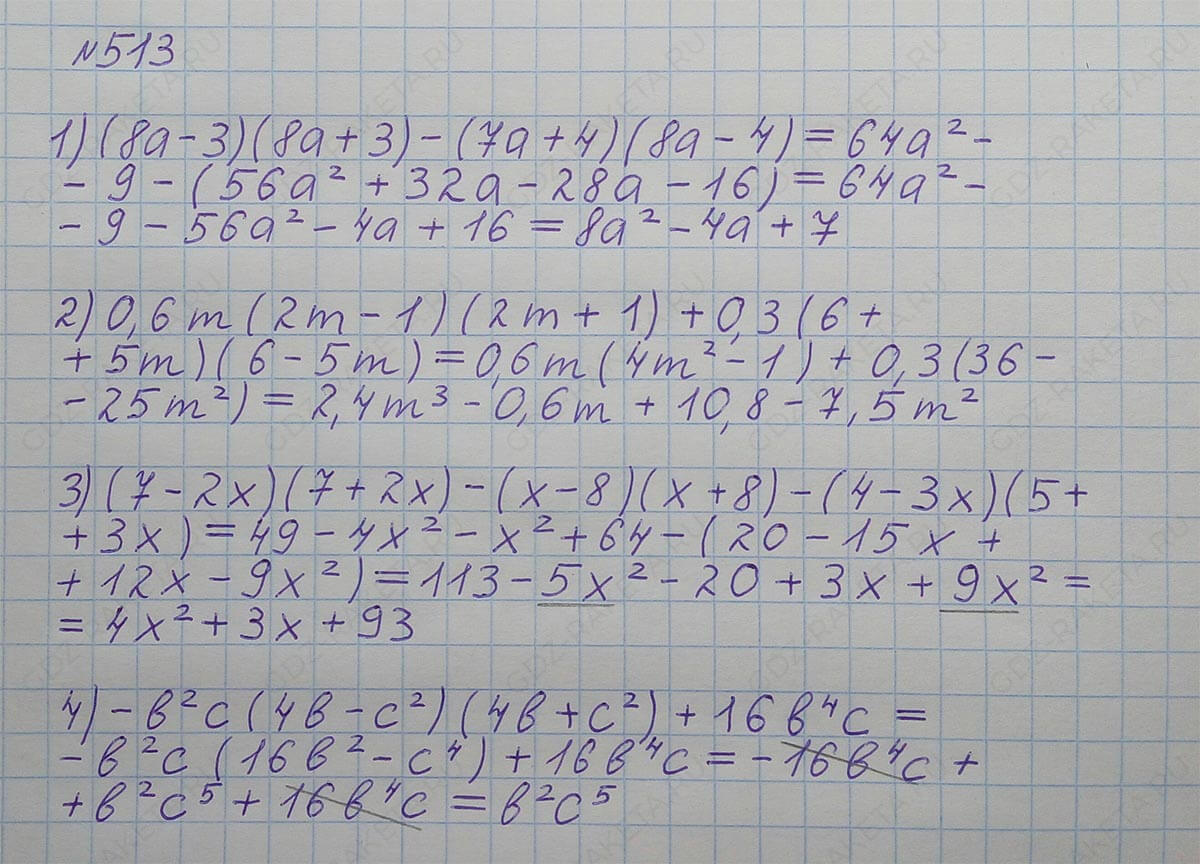 №513
1) (8a-3)(8a+3)-(7a+4)(8a-4)=64a²-
-9-(56a²+32a-28a-16)=64a²-
-9-56a²-4a+16=8a²-4a+7
2) 0,6m(2m-1)(2m+1)+0,3(6+
+5m)(6-5m)=0,6m(4m²-1)+0,3(36-
-25m²)=2,4m³-0,6m+10,8-7,5m²
3) (7-2x)(7+2x)-(x-8)(x+8)-(4-3x)(5+
+3x)=49-4x²-x²+64-(20-15x+
+12x-9x²)=113-5x²-20+3x+9x²=
=4x²+3x+93
4) -в²c(4в-c²)(4в+c²)+16в⁴c=
-в²c(16в²-c⁴)+16в⁴c=-16в⁴c+
+в²c⁵+16в⁴c=в²c⁵
GDZ-RAKETA.RU